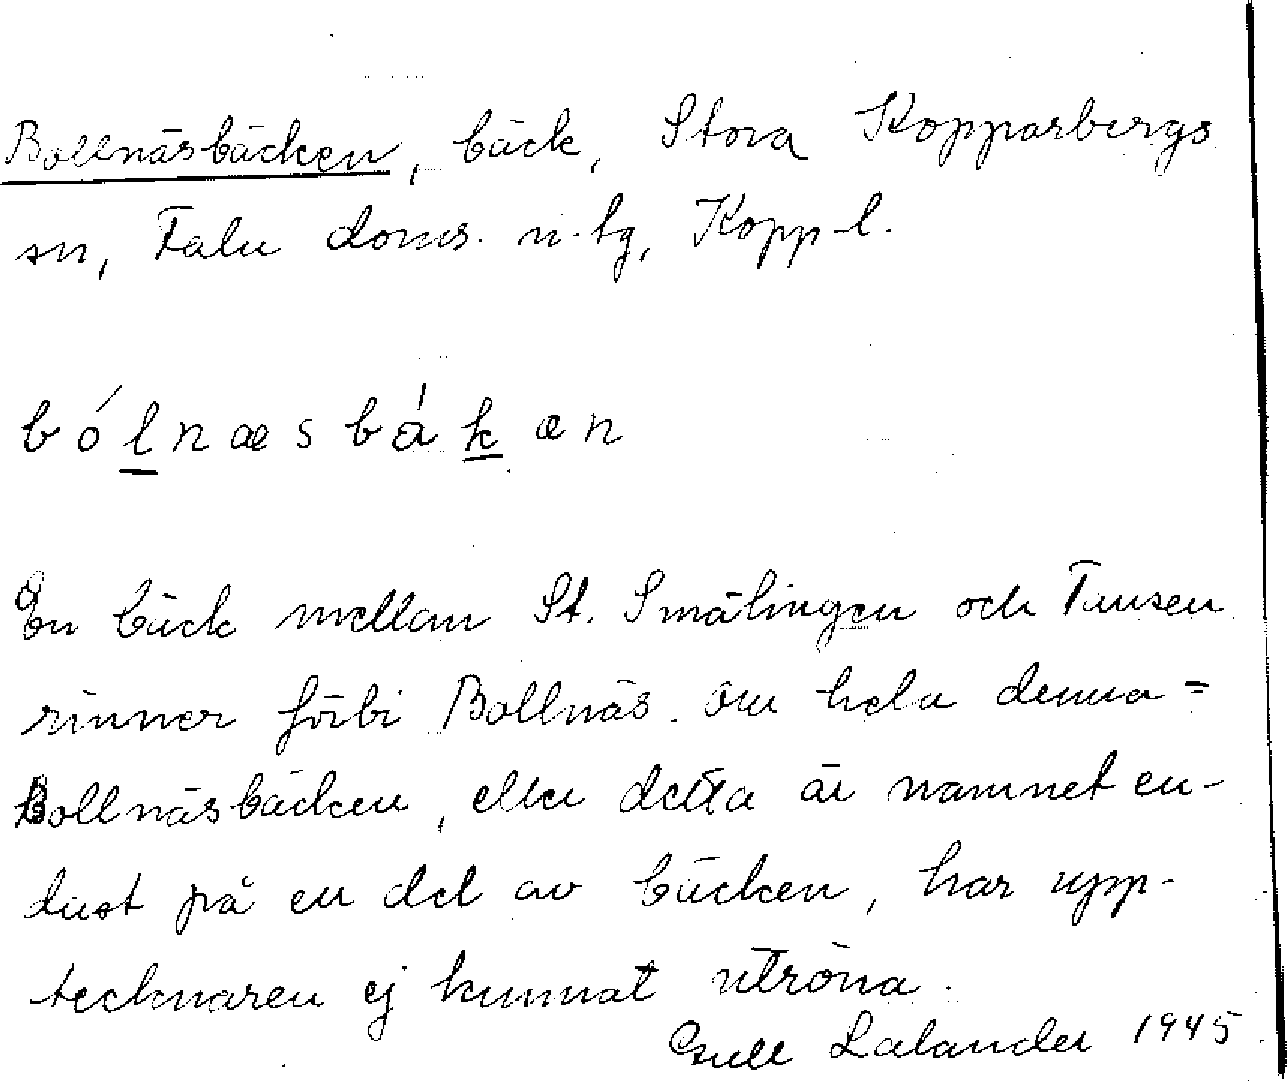 Bollnäsbäcken, bäck, Stora Kopparbergs
sn, Falu doms. n. tg, Kopp-l.
bólnæsbákæn
En bäck mellan St. Smälingen och Tansen
rinner förbi Bollnäs. Om hela denna =
Bollnäsbäcken, eller detta är namnet en-
dast på en del av bäcken, har upp-
tecknaren ej kunnat utröna.
Gull Lalander 1945